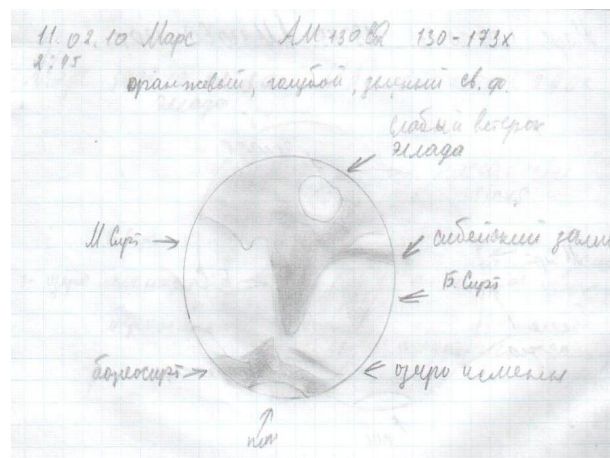 11.02.10 Марс АМ 130 130-173х
2:45
оранжевый, голубой, зеленый св. ф.
слабый ветерок
Эллада
М Сирт
сабейский залив
Б. Сирт
бореосирт
озеро исмены